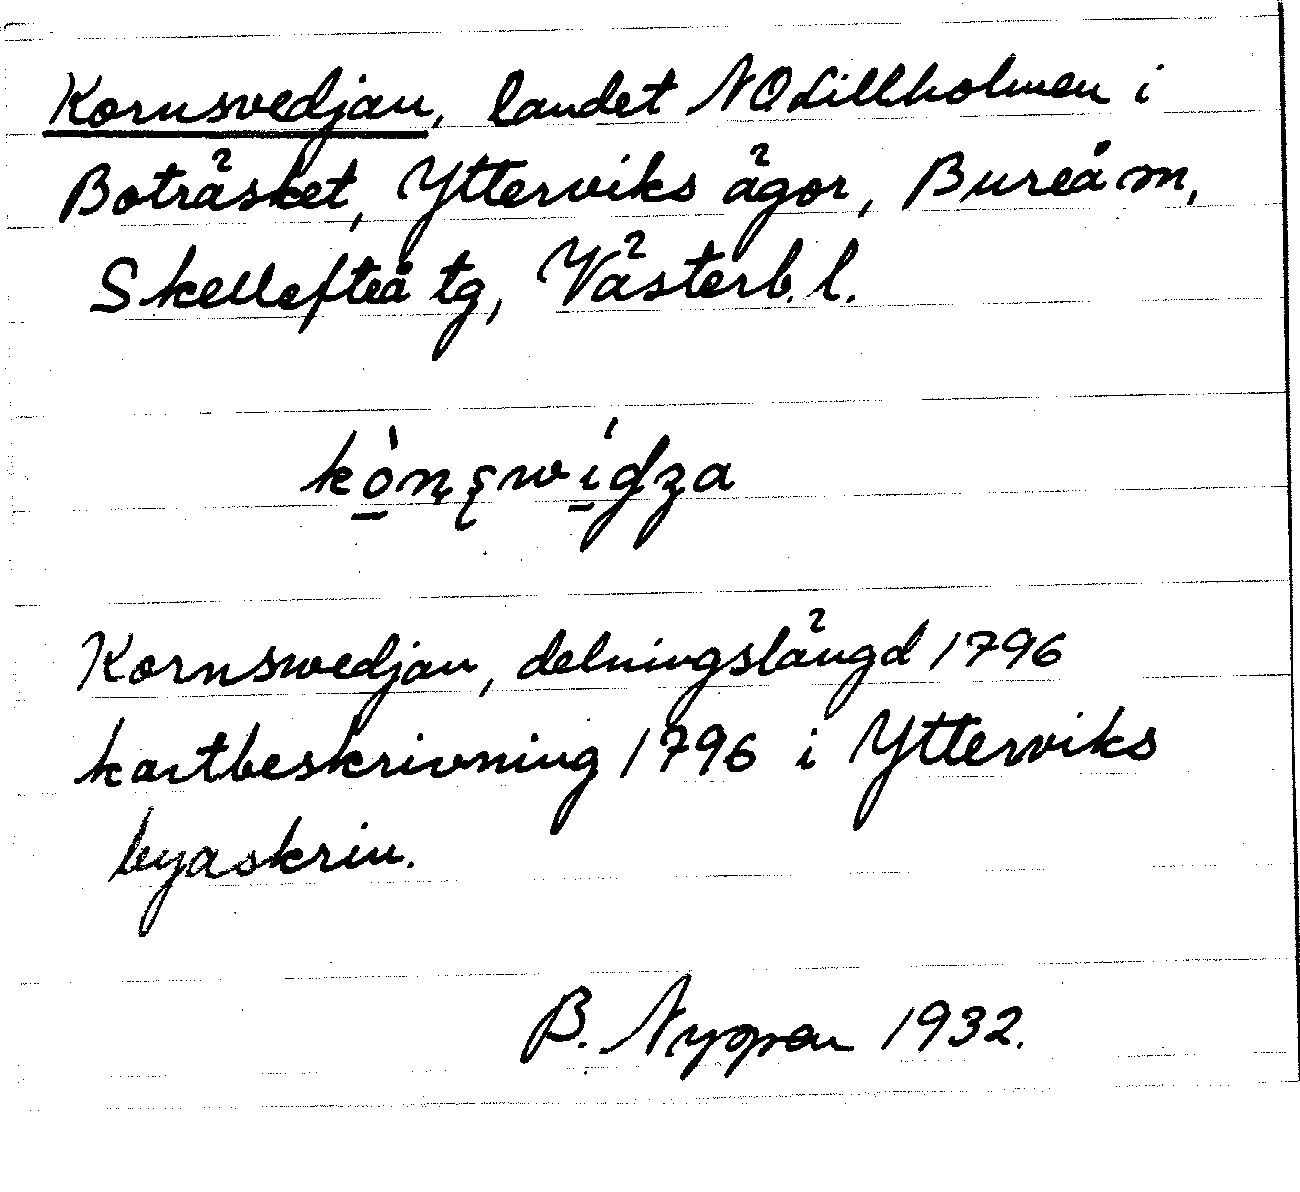 Kornsvedjan, landet NO Lillholmen i
Boträsket, Ytterviks ägor, Bureå sn,
Skellefteå tg, Västerb. l.
Kornswedjan, delningslängd 1796
kartbeskrivning 1796 i Ytterviks
byaskrin.
B. Nygren 1932.